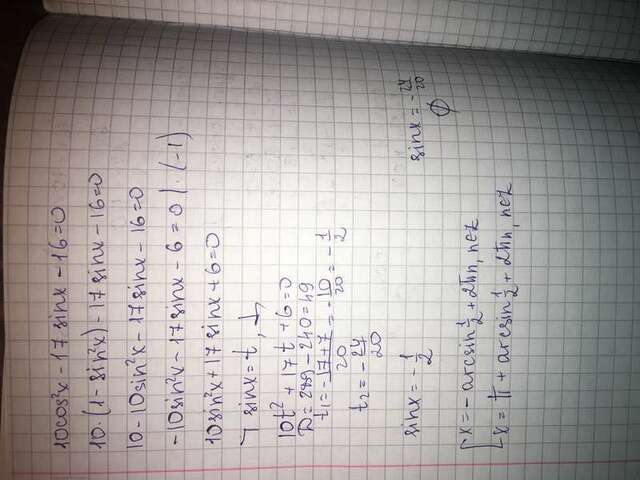 10cos²x - 17sinx - 16 = 0
10·(1 - sin²x) - 17sinx - 16 = 0
10 - 10sin²x - 17sinx - 16 = 0
-10sin²x - 17sinx - 6 = 0 | ·(-1)
10sin²x + 17sinx + 6 = 0
sinx = t,
10t² + 17t + 6 = 0
D = 289 - 240 = 49
t₁ = (-17+7)/20 = -10/20 = -1/2
t₂ = -24/20
sinx = -1/2 sinx = -24/20
∅
x = -arcsin 1/2 + 2πn, n∈Z
x = π + arcsin 1/2 + 2πn, n∈Z